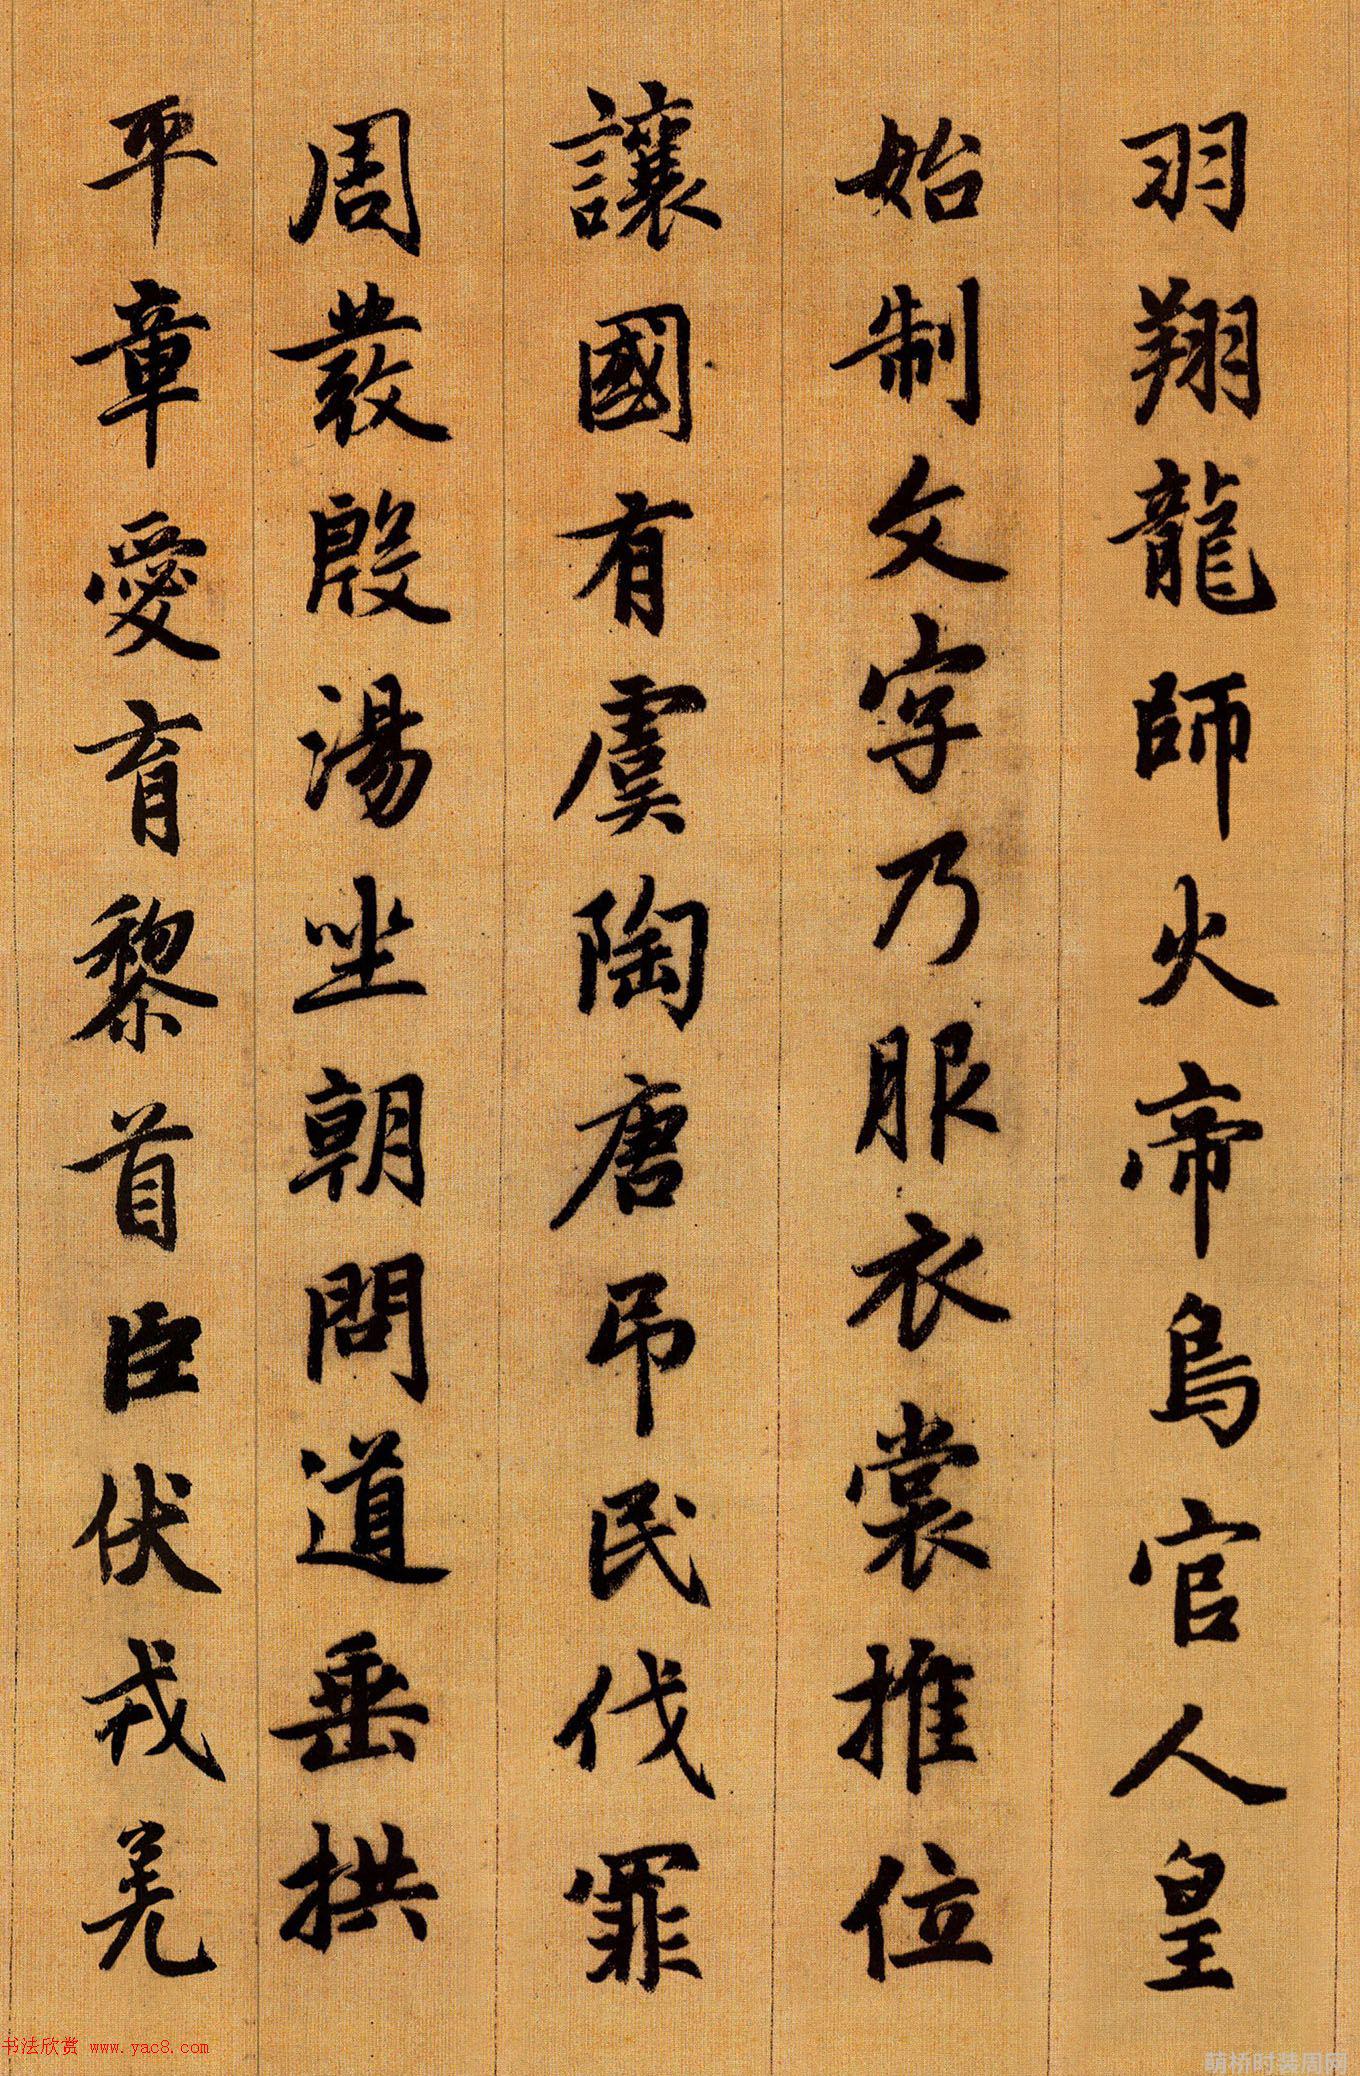 羽翔龍師火帝鳥官人皇
始制文字乃服衣裳推位
讓國有虞陶唐吊民伐罪
周發殷湯坐朝問道垂拱
平章愛育黎首臣伏戎羌
书法欣赏 www.yac8.com
萌桥时装周网